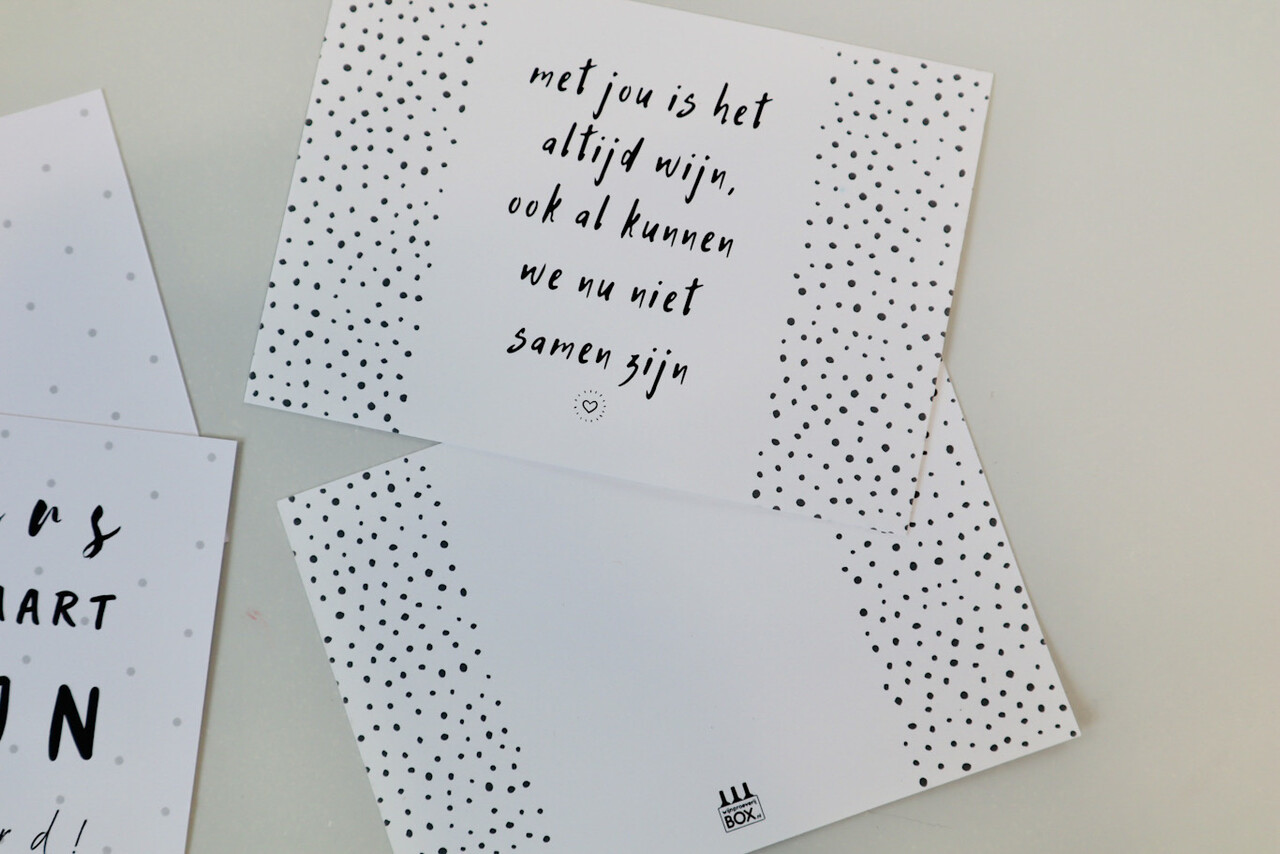 met jou is het
altijd wijn,
ook al kunnen
we nu niet
samen zijn
wijnproeverij
BOX.nl